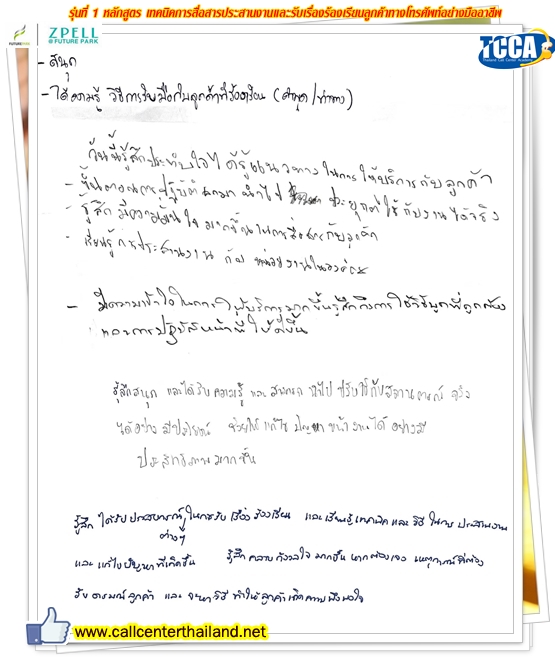 รุ่นที่ 1 หลักสูตร เทคนิคการสื่อสารประสานงานและรับเรื่องร้องเรียนลูกค้าทางโทรศัพท์อย่างมืออาชีพ
FUTURE PARK
ZPELL
@ FUTURE PARK
TCCA
Thailand Call Center Academy
- สนุก
- ได้ความรู้ วิธีการรับมือกับลูกค้าที่ร้องเรียน (คำพูด/ท่าทาง)
วันนี้รู้สึกประทับใจได้รู้แนวทางในการให้บริการกับลูกค้า
- ขั้นตอนการปฏิบัติ นำไป ประยุกต์ใช้กับงานได้จริง
- รู้สึกมีความมั่นใจมากขึ้นในการสื่อสารกับลูกค้า
- เรียนรู้การประสานงาน กับ หน่วยงานในองค์กร
- มีความเข้าใจในการให้บริการมากขึ้นรู้สึกถึงการใช้วิธีพูดที่ถูกต้อง
และการปฏิบัติหน้าที่ให้ดีขึ้น
รู้สึกสนุก และได้รับความรู้ และสามารถ นำไป ปรับใช้กับสถานการณ์ จริง
ได้อย่าง มีประโยชน์ ช่วยให้ แก้ไข ปัญหา หน้างานได้ อย่างมี
ประสิทธิภาพมากขึ้น
รู้สึก ได้รับ ประสบการณ์ ในการรับ เรื่อง ร้องเรียน และเรียนรู้เทคนิค และ วิธี ในการ ประสานงาน
ต่างๆ
และ แก้ไขปัญหาที่เกิดขึ้น รู้สึก คลายกังวลใจ มากขึ้น หากต้องเจอ เหตุการณ์ที่ต้อง
รับ อารมณ์ลูกค้า และ จะหาวิธี ทำให้ลูกค้าเกิดความพึงพอใจ
www.callcenterthailand.net